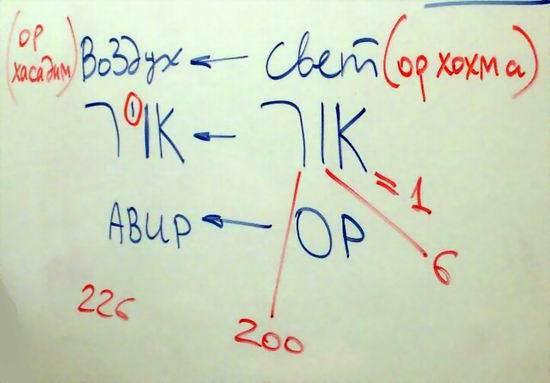 (ор хасадим) Воздух ← Свет (ор хохма)
אויר ← אור = 1
АВИР ← ОР
6
226
200